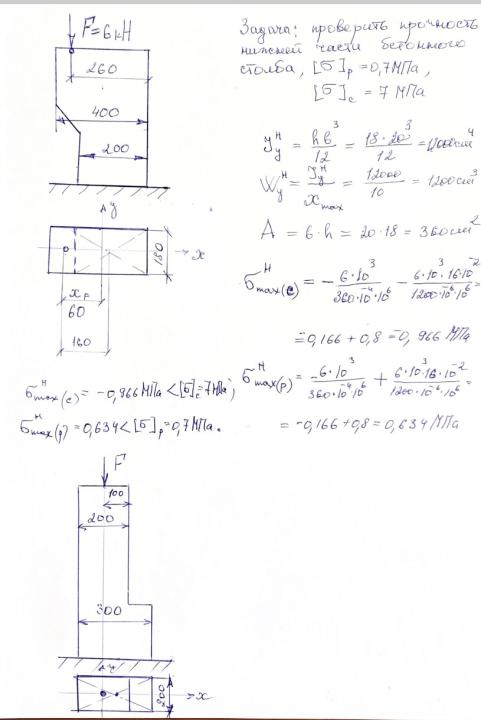 F=6кН
260
400
200
Задача: проверить прочность
нижней части бетонного
столба, [σ]р = 0,7МПа,
[σ]с = 7 МПа
Jy^н = hb³/12 = 18·20³/12 = 12000см⁴
Wy^н = Jy^н/Xmax = 12000/10 = 1200см³
A = b·h = 20·18 = 360см²
y
x
180
xF
60
160
σ^н max(с) = - 6·10³/360·10⁻⁴·10⁶ - 6·10³·16·10⁻²/1200·10⁻⁶·10⁶ =
=-0,166 + 0,8 = -0,966 МПа
σ^н max(р) = -6·10³/360·10⁻⁴·10⁶ + 6·10³·16·10⁻²/1200·10⁻⁶·10⁶ =
= -0,166+0,8 = 0,634 МПа
σ^н max(с) = -0,966 МПа < [σ]с = 7МПа;
σ^н max(р) = 0,634 < [σ]р = 0,7МПа.
F
100
200
300
y
x
200